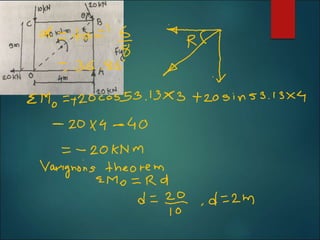 10KN
20KN
C
B
40KNm
9m
O
A
20KN
4m
20KN
R
ΣMo=+20cos53.13×3 +20sin53.13×4
-20×4-40
=-20KNm
Varignons theorem
ΣMo=Rd
d=20/10, d=2m